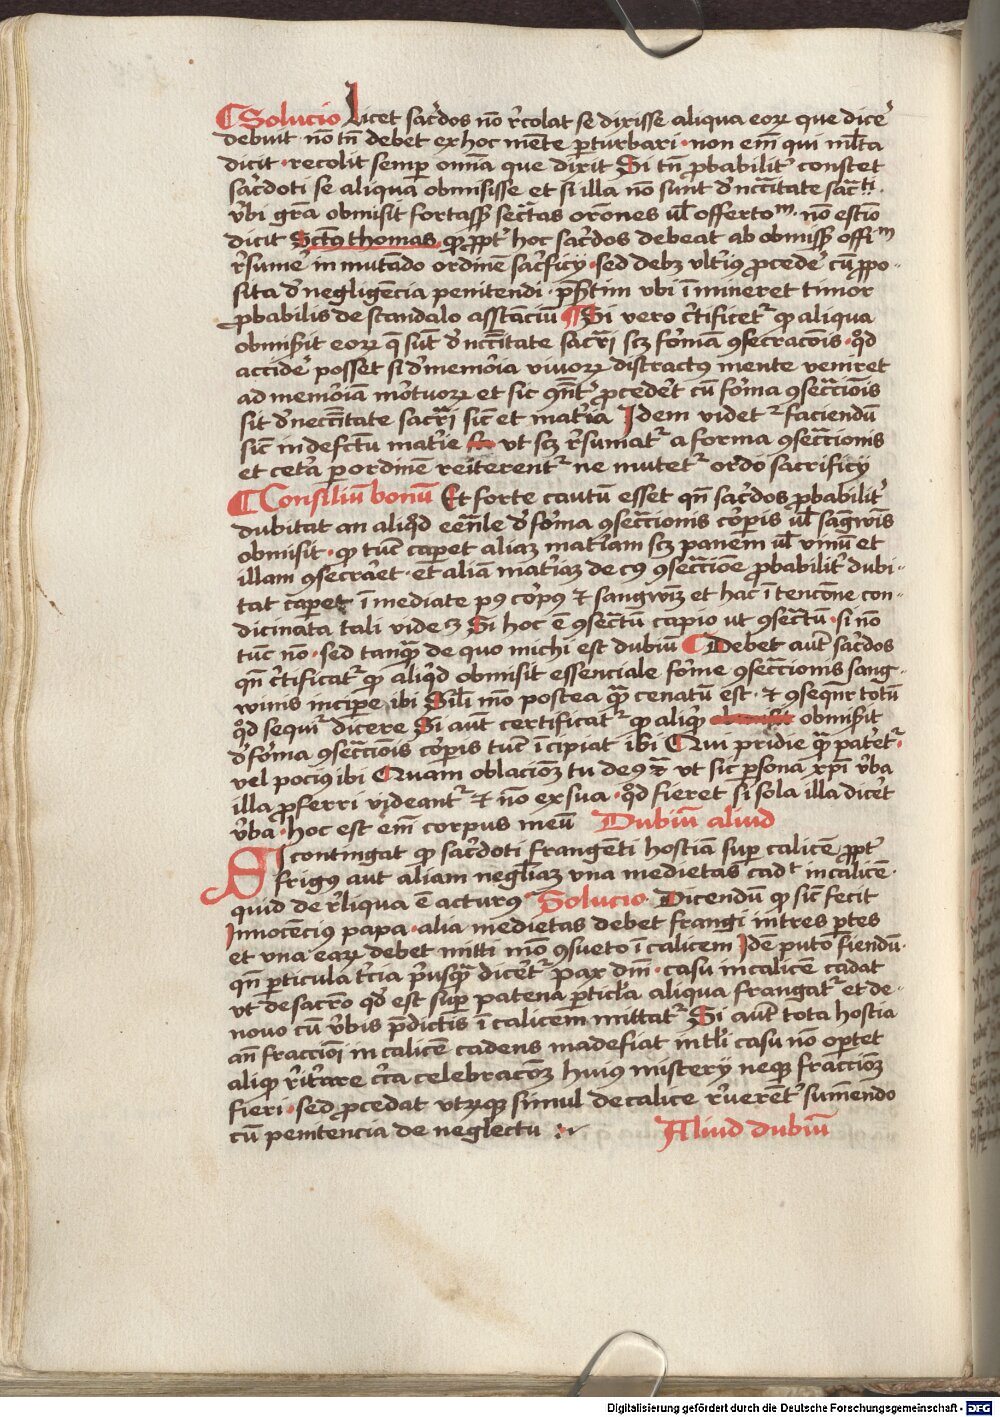 Solucio Licet sac̄dos nō r̄colat se dixisse aliqua eoꝝ que dicē
debuit nō tn̄ debet ex hoc mēte ꝑturbari · non em̄ qui ml̄ta
dicit · recolit semꝑ omīa que dixit Si tn̄ ꝓbabilit᷑ constet
sac̄doti se aliqua obmisisse et si illa nō sunt d̄ nc̄c̄itate sac̄ti ·
v̄bi gr̄a obmisit fortass̄ sec̄tas or̄ones ul̓ offertoᵐ · nō estīo
dicit Sctūs thomas qꝫ ꝓpt᷑ hoc sac̄dos debeat ab obmiss̄ offiᵐ
r̄sume᷑ in mutādo ordinē sac̄ficij · sed debꝫ vlt᷑iꝰ ꝓcede᷑ cū ꝓpo-
sita d̄ negligēcia penitendi · p̄s̄tim vbi īmineret timor
ꝓbabilis de scandalo asstanciū Si vero c̄tificet᷑ ꝙ aliqua
obmisit eoꝝ q̄ sūt d̄ nc̄c̄itate sac̄ri scꝫ formā ꝯsecracōis · qd̄
accide᷑ posset si d̄ memoīa vivoꝝ distractus mente veniret
ad memoīā mortuoꝝ et sic qn̄t᷑ ꝓcede᷑t cū forma ꝯsec̄cionis
sit d̄ necc̄itate sac̄ri sic̄ et mat᷑ia Idem videt᷑ faciendū
sic̄ in defctu mat᷑ie vt scꝫ r̄sumat᷑ a forma ꝯsec̄cionis
et cet᷑a ꝑ ordinē reiterent᷑ ne mutet᷑ ordo sacrificij
Consiliū bonū Et forte cautū esset qn̄ sac̄dos ꝓbabilit᷑
dubitat an aliqd̄ eēn̄le d̄ forma ꝯsec̄cionis corꝑis ul̓ sāgwīs
obmisit · ꝙ tūc caperet aliaꝫ mat᷑iam scꝫ panem ul̓ vinū et
illam ꝯsecra᷑et · et aliā mat᷑iaꝫ de cꝰ ꝯsec̄cione ꝓbabilit᷑ dubi-
tat caperet īmediate pꝰ corpꝰ ⁊ sangwīꝫ et hac ītencōne con-
dicinata tali videꝫ Si hoc ē ꝯsec̄tū capio ut ꝯsec̄tū · si nō
tūc nō · sed tanqꝫ de quo michi est dubiū Debet aut̄ sac̄dos
qn̄ c̄tificat᷑ ꝙ aliqd̄ obmisit essenciale forme ꝯsec̄cionis sang-
winis incipe᷑ ibi Sil̄i mo postea qꝫ cenatū est · ⁊ ꝯseqn̄r totū
qd̄ sequi᷑ dicere Si aut̄ certificat᷑ ꝙ aliqd̄ obmisit
d̄ forma ꝯsec̄cionis corꝑis tūc īcipiat ibi Qui pridie qꝫ pateret᷑ ·
vel pociꝰ ibi Quam oblacioꝫ tu deꝰ ⁊ vt sic ꝑsona xp̄i v̄ba
illa ꝓferri videant᷑ ⁊ nō ex sua · qd̄ fieret si sola illa dice᷑t
v̄ba · hoc est em̄ corpus meū Dubiū aliud
Si contingat ꝙ sac̄doti frangēti hostiā suꝑ calicē ꝓpt᷑
frigꝰ aut aliam negl̄iaꝫ vna medietas cadt in calicē ·
quid de r̄liqua ē acturꝰ Solucio · Dicendū ꝙ sic̄ fecit
Innocēciꝰ papa · alia medietas debet frangi in tres ꝑtes
et vna eaꝝ debet mitti mō ꝯsueto ī calicem Idē puto fiendū ·
qn̄ ꝑticula t᷑cia pᷣusqꝫ dice᷑t᷑ pax dn̄i · casu in calicē cadat
vt de sac̄ro qd̄ est suꝑ patena ꝑticl̄a aliqua frangat᷑ et de-
novo cū v̄bis p̄dictis ī calicem mittat᷑ Si aut̄ tota hostia
an̄ fraccioī in calicē cadens madefiat in tl̄i casu nō oꝑtet
aliqd̄ r̄it᷑are c̄ca celebracoꝫ huius misterij neqꝫ fraccioꝫ
fieri · sed ꝓcedat vt᷑ꝯqꝫ simul de calice r̄veren᷑t᷑ sumendo
cū penitencia de neglectu Aliud dubiū
Digitalisierung gefördert durch die Deutsche Forschungsgemeinschaft - DFG